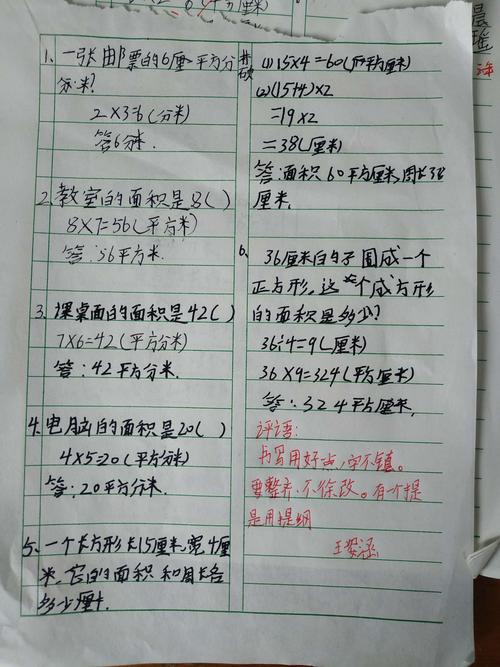 1、一张邮票的6厘平方分
分米?
2×3=6(分米)
答6分米.
2.教室的面积是8( )
8×7=56(平方米)
答:56平方米.
3.课桌面的面积是42( )
7×6=42(平方分米)
答:42平方分米.
4.电脑的面积是20( )
4×5=20(平方分米)
答:20平方分米.
5、一个长方形长15厘米,宽4厘
米,它的面积和周长各
多少厘米.
(1)15×4=60(平方厘米)
(2)(15+4)×2
=19×2
=38(厘米)
答:面积60平方厘米,周长38
厘米.
6、36厘米的子围成一个
正方形,这个成方形
的面积是多少?
36÷4=9(厘米)
36×9=324(平方厘米)
答:324平方厘米.
评语:
书写用好点,字不镇。
要整齐,不徐改。有一个提
是用提纲
王姿涵